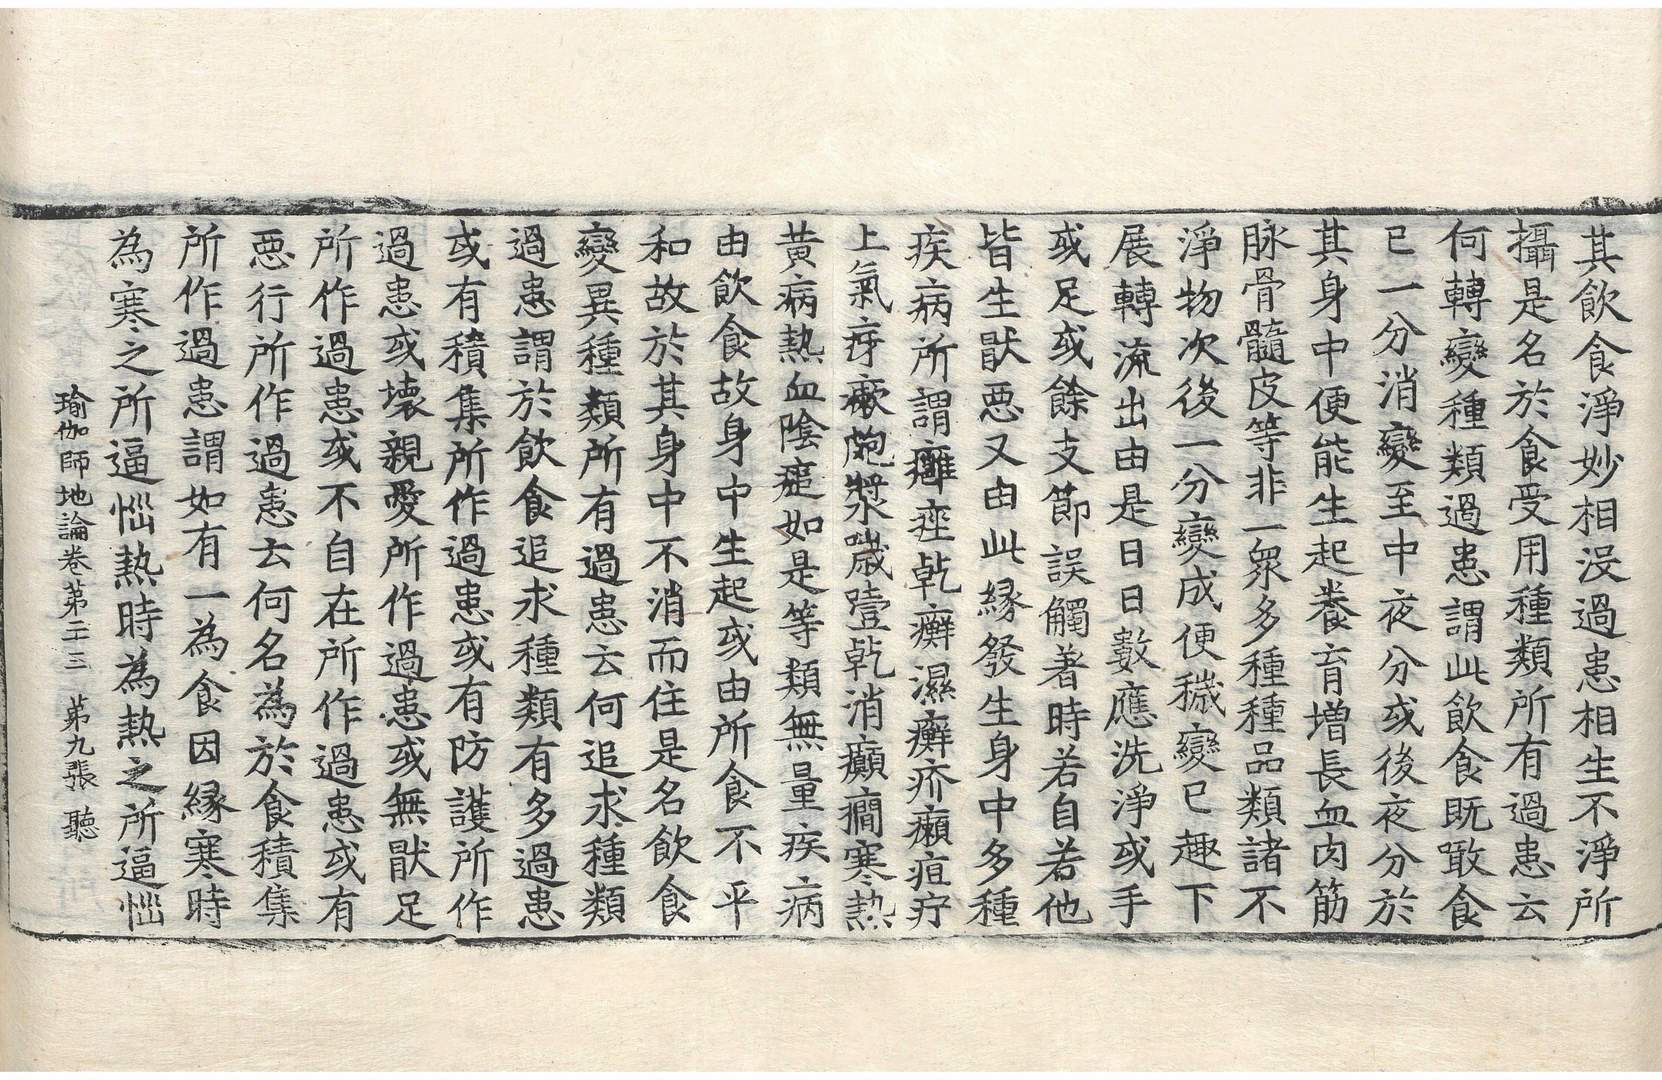 其飲食淨妙相没過患相生不淨所
攝是名於食受用種類所有過患云
何轉變種類過患謂此飲食既噉食
已一分消變至中夜分或後夜分於
其身中便能生起養育增長血肉筋
脉骨髓皮等非一衆多種種品類諸不
淨物次後一分變成便穢變已趣下
展轉流出由是日日數應洗淨或手
或足或餘支節誤觸著時若自若他
皆生猒惡又由此緣發生身中多種
疾病所謂癰痤乾癬濕癬疥癩疽疔
上氣疨㿇皰漿噦噎乾消癲癇寒熱
黃病熱血陰㿈如是等類無量疾病
由飲食故身中生起或由所食不平
和故於其身中不消而住是名飲食
變異種類所有過患云何追求種類
過患謂於飲食追求種類有多過患
或有積集所作過患或有防護所作
過患或壞親愛所作過患或無猒足
所作過患或不自在所作過患或有
惡行所作過患云何名為於食積集
所作過患謂如有一為食因緣寒時
為寒之所逼惱熱時為熱之所逼惱
瑜伽師地論卷第二十三 第九張 聽